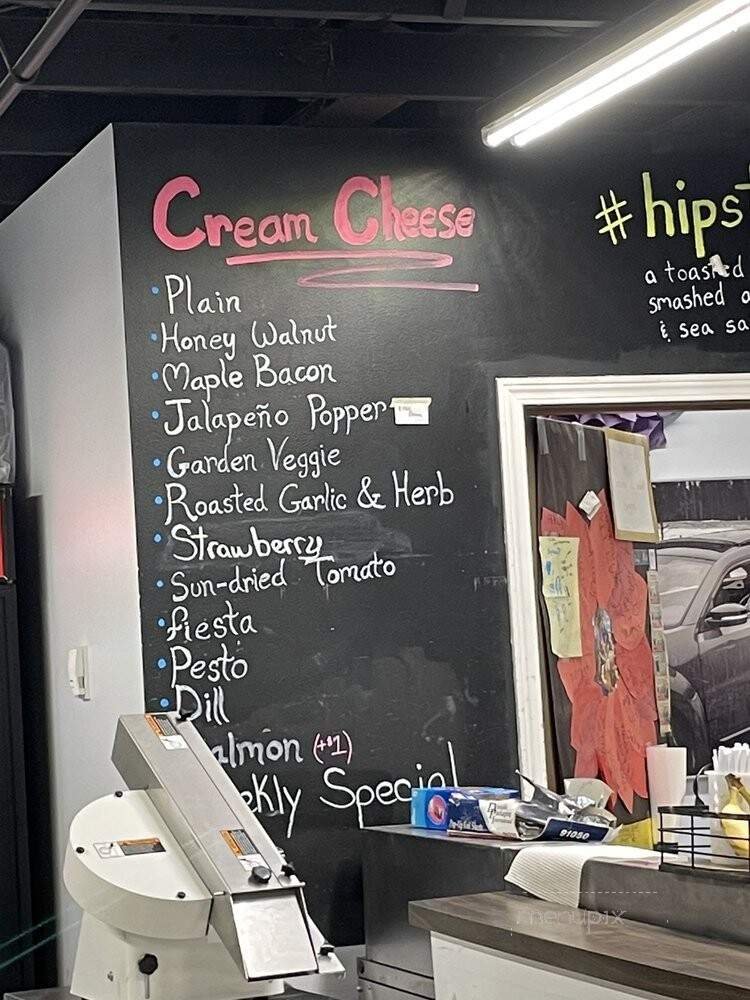 Cream Cheese
• Plain
• Honey Walnut
• Maple Bacon
• Jalapeño Popper
• Garden Veggie
• Roasted Garlic & Herb
• Strawberry
• Sun-dried Tomato
• fiesta
• Pesto
• Dill
almon (+$1)
ekly Special
#hipst
a toasted
smashed a
& sea sa
91050
menupix